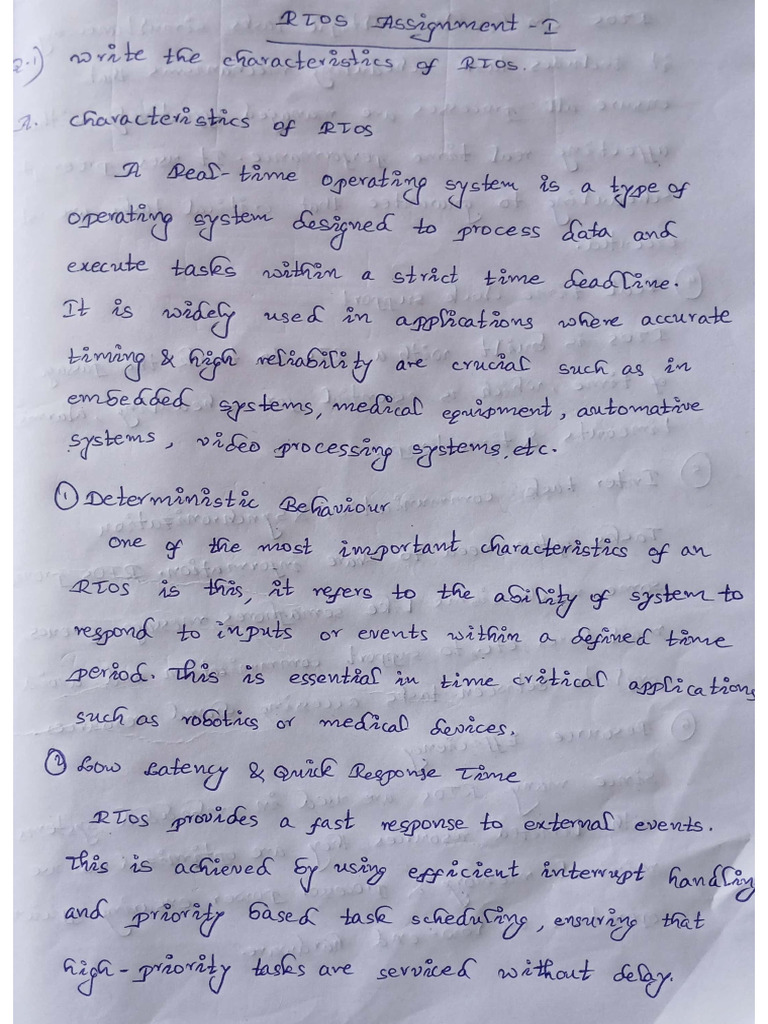 RTOS Assignment - I
Q.1) Write the characteristics of RTOS.
A. Characteristics of RTOS
A Real-time operating system is a type of
operating system designed to process data and
execute tasks within a strict time deadline.
It is widely used in applications where accurate
timing & high reliability are crucial such as in
embedded systems, medical equipment, automative
systems, video processing systems, etc.
① Deterministic Behaviour
One of the most important characteristics of an
RTOS is this, it refers to the ability of system to
respond to inputs or events within a defined time
period. This is essential in time critical applications
such as robotics or medical devices.
② Low Latency & Quick Response Time
RTOS provides a fast response to external events.
This is achieved by using efficient interrupt handling
and priority based task scheduling, ensuring that
high-priority tasks are serviced without delay.